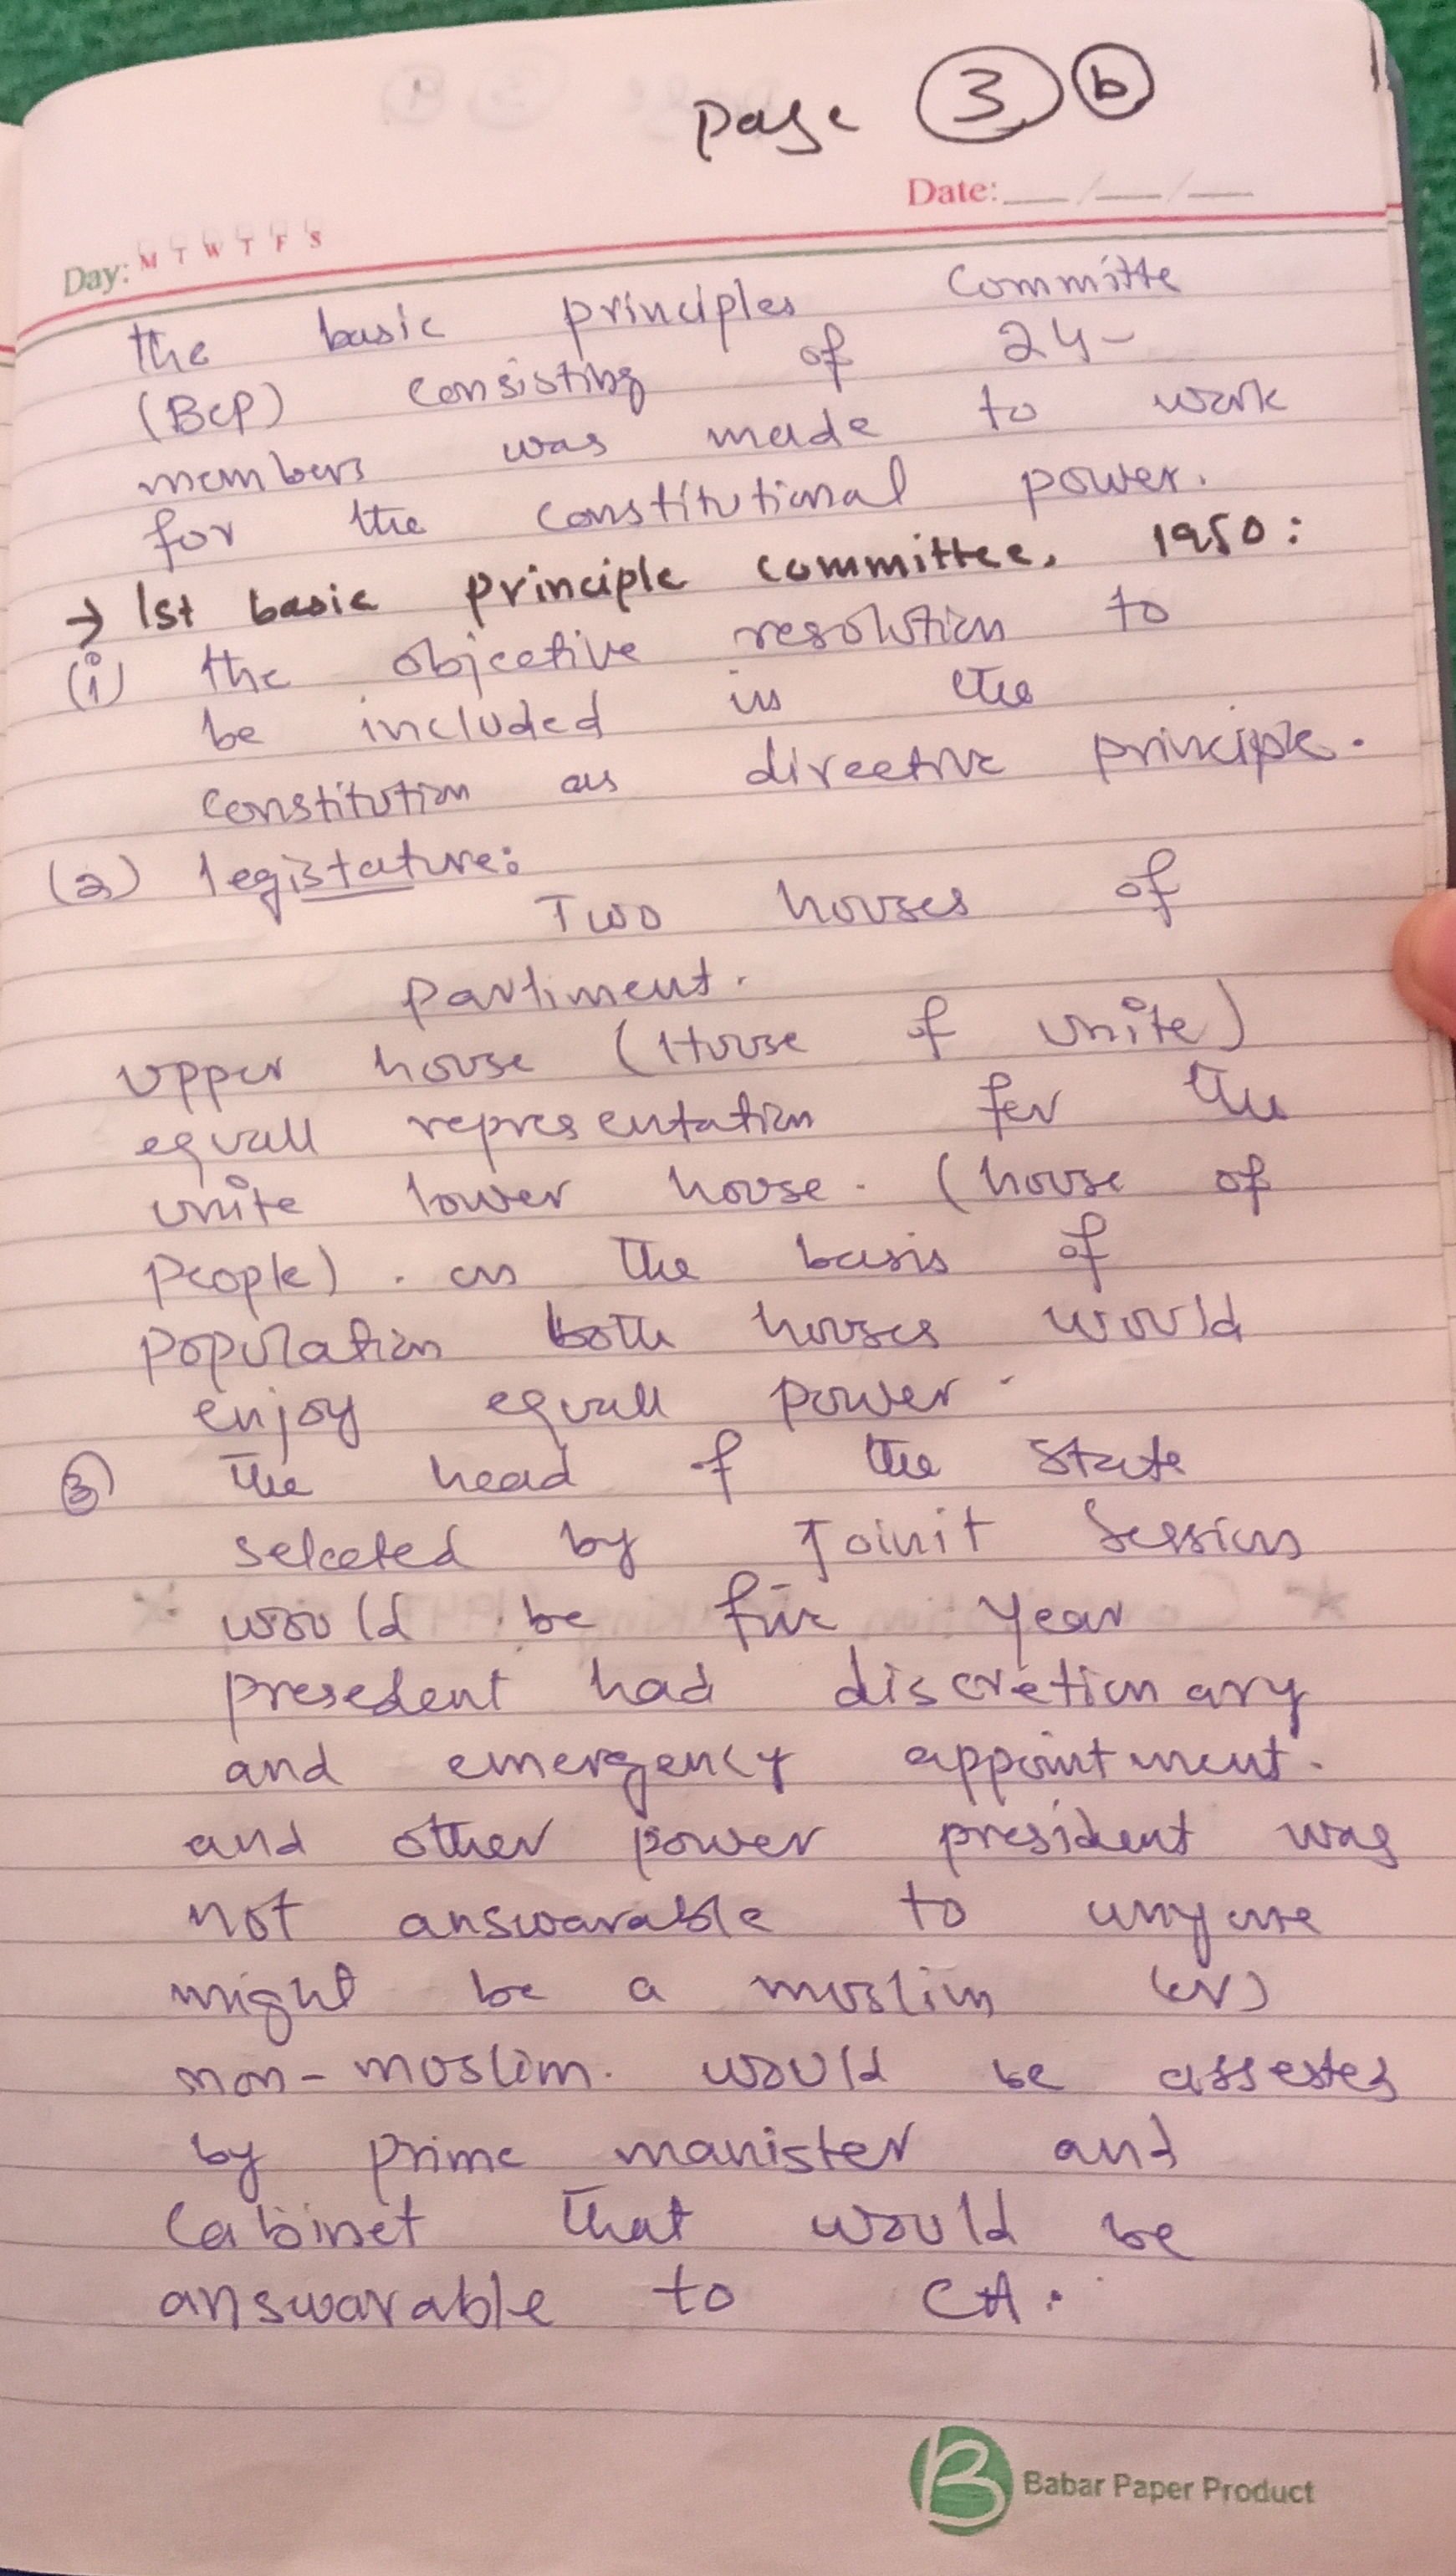 Page 3 b
Date: __/__/__
Day: M T W T F S
the basic principles Committe
(BCP) consisting of 24-
members was made to work
for the constitutional power.
→ 1st basic principle committee, 1950:
(i) the objective resolution to
be included in the
constitution as directive principle.
(2) legistature:
Two houses of
parliment.
upper house (House of unite)
equall representation for the
unite lower house. (house of
people). on the basis of
population both houses would
enjoy equall power.
3) The head of the state
selected by Joinit Session
would be five year
presedent had discretionary
and emergency appointment.
and other power president was
not answarable to anyone
might be a muslim (or)
non-muslim. would be assested
by prime manister and
Cabinet that would be
answarable to CA.
B Babar Paper Product